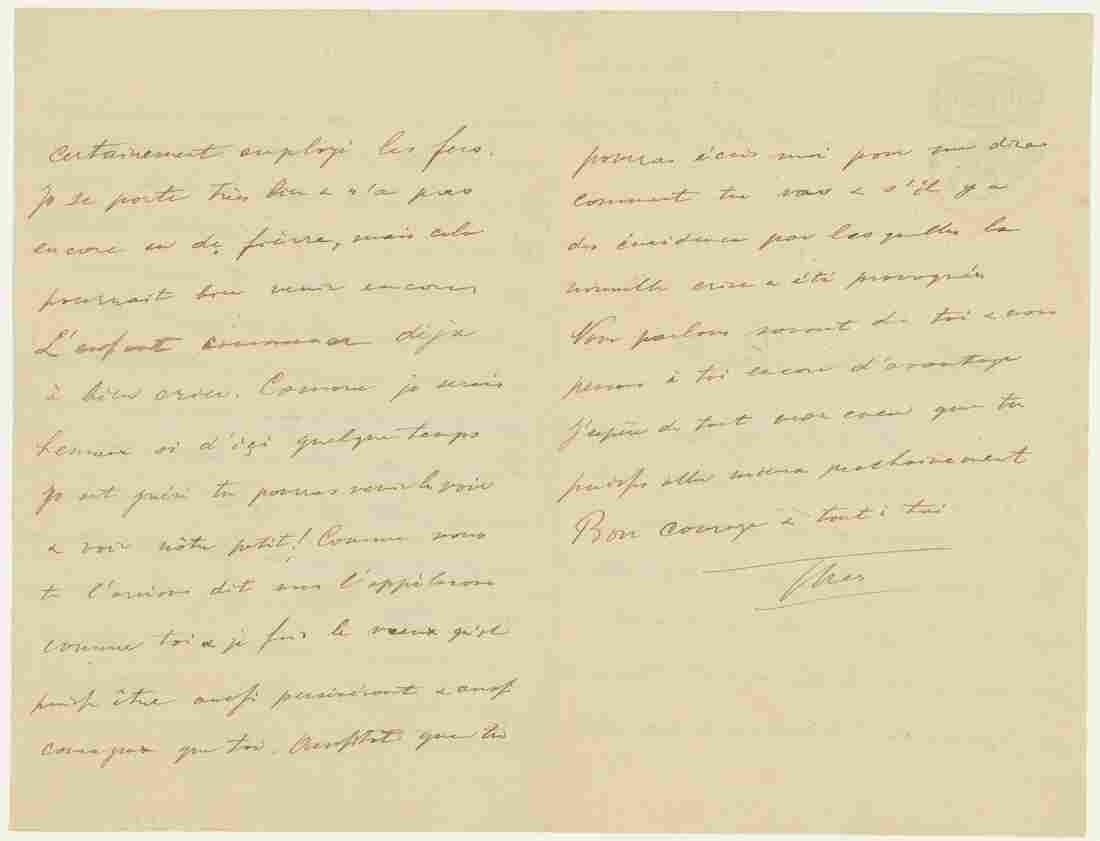 certainement employé les fers.
Jo se porte très bien & n'a pas
encore eu de fièvre, mais cela
pourrait bien venir encore
L'enfant commence déjà
à bien crier. Comme je serais
heureux si d'içi quelque temps
Jo est guéri tu pourras venir le voir
& voir nôtre petit! Comme nous
te l'avions dit nous l'appelerons
comme toi & je fais le voeux qu'il
puisse être aussi persévérant & aussi
courageux que toi. Aussitôt que tu
pourras écris moi pour me dire
comment tu vas & s'il y a
des évidences par lesquelles la
nouvelle crise a été provoquée
Nous parlons souvent de toi & nous
pensons à toi encore d'avantage
J'espère de tout mon coeur que tu
puisse aller mieux prochainement
Bon courage & tout à toi
Theo